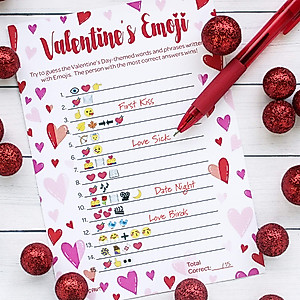 Valentine's Emoji
Try to guess the Valentine's Day-themed words and phrases written
with Emojis. The person with the most correct answers wins!
1.
2. First Kiss
3.
4.
5. Love Sick
6.
7.
8.
9. Date Night
10.
11. Love Birds
12.
13.
14.
15.
Total
Correct: /15